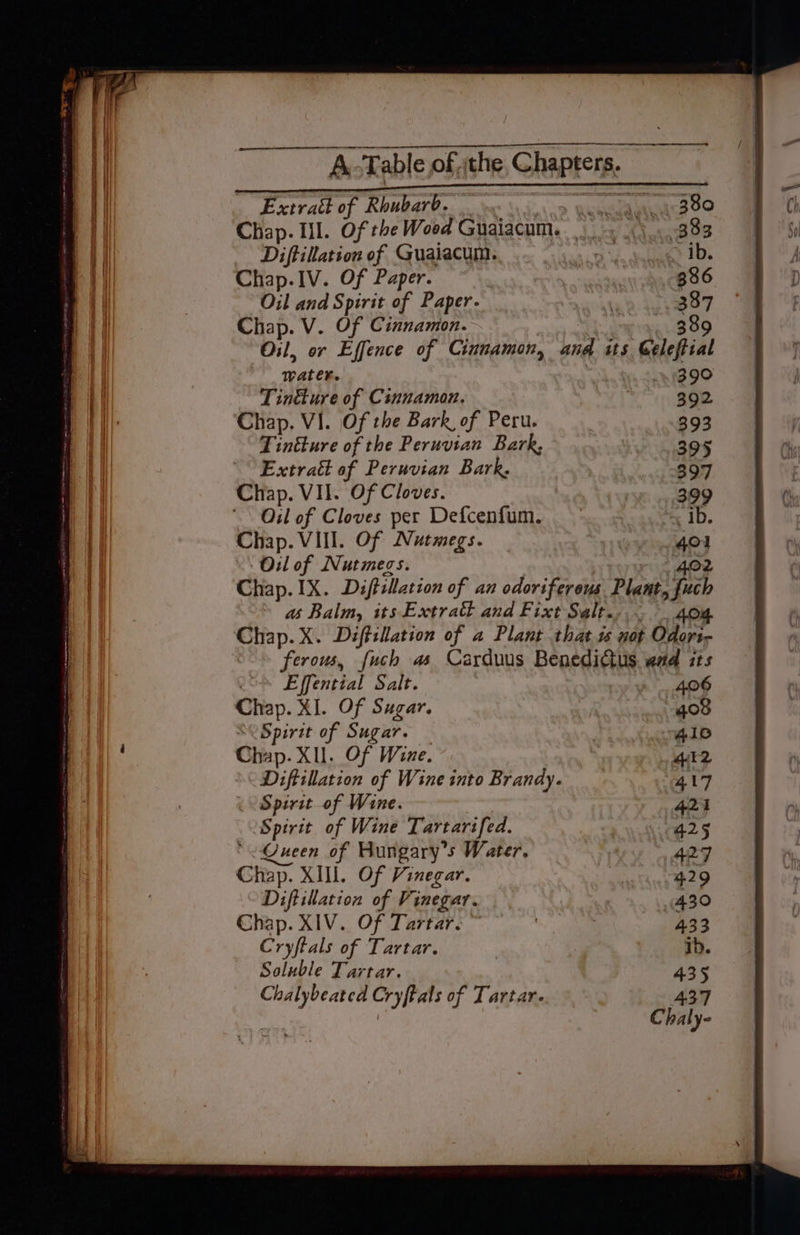 A Table of the Chapters.
Extract of Rhubarb. 380
Chap. III. Of the Wood Guaiacum. 383
Diſtillation of Guaiacum. ib.
Chap. IV. Of Paper. 386
Oil and Spirit of Paper. 387
Chap. V. Of Cinnamon. 389
Oil, or Eſſence of Cinnamon, and its Celeſtial
water. 390
Tincture of Cinnamon. 392
Chap. VI. Of the Bark of Peru. 393
Tincture of the Peruvian Bark, 395
Extract of Peruvian Bark. 397
Chap. VII. Of Cloves. 399
Oil of Cloves per Deſcenſum. ib.
Chap. VIII. Of Nutmegs. 401
Oil of Nutmegs. 402
Chap. IX. Diſtillation of an odoriferous Plant, ſuch
as Balm, its Extract and Fixt Salt. 404
Chap. X. Diſtillation of a Plant that is not Odori-
ferous, ſuch as Carduus Benedictus and its
Eſſential Salt. 406
Chap. XI. Of Sugar. 408
Spirit of Sugar. 410
Chap. XII. Of Wine. 412
Diſtillation of Wine into Brandy. 417
Spirit of Wine. 421
Spirit of Wine Tartariſed. 425
Queen of Hungary's Water. 427
Chap. XIII. Of Vinegar. 429
Diſtillation of Vinegar. 430
Chap. XIV. Of Tartar. 433
Cryſtals of Tartar. ib.
Soluble Tartar. 435
Chalybeated Cryſtals of Tartar. 437
Chaly-